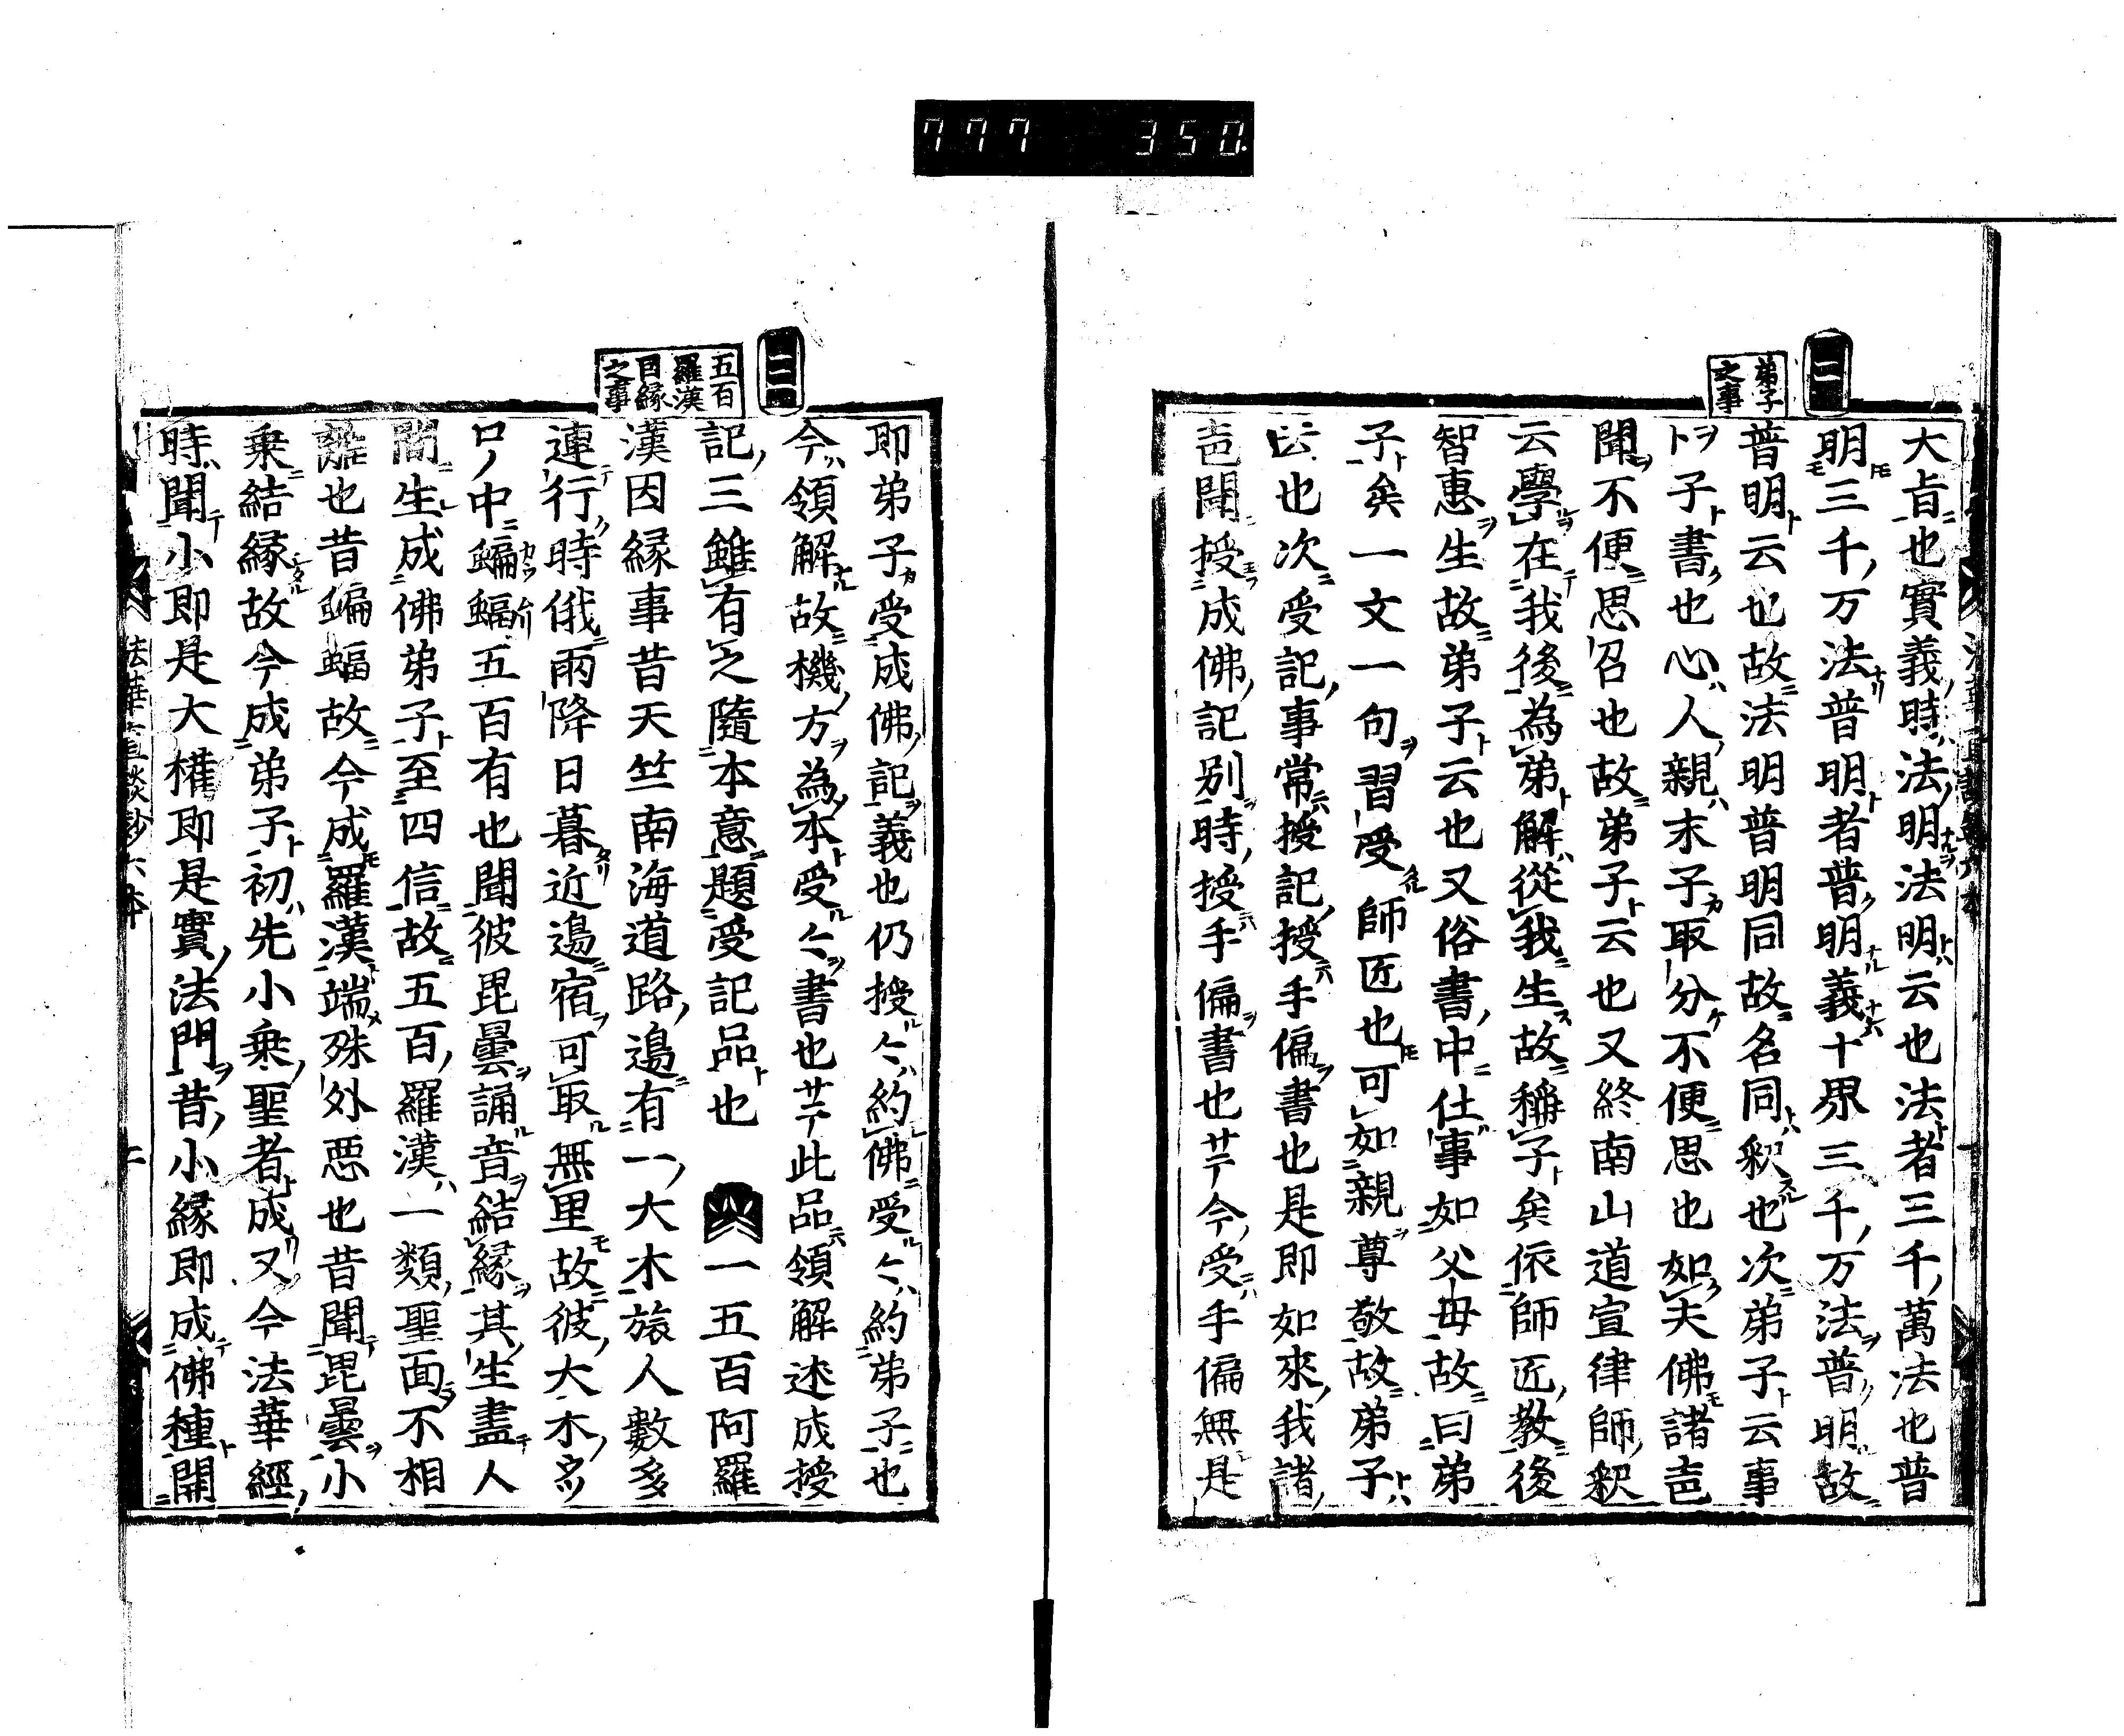 777 350
二
弟子
之事
大㫖也實義時法明法明云也法者三千萬法也普
明三千万法普明者普明義十界三千万法普明故
普明云也故法明普明同故名同釈也次弟子云事
ヲト子書也心人親末子取分不便思也如夫佛諸
聞不便思召也故弟子云也又終南山道宣律師釈
云學在我後為弟解從我生故稱子矣依師匠教後
智惠生故弟子云也又俗書中仕事如父母故曰弟
子矣一文一句習受師匠也可如親尊敬故弟子
云也次受記事常授記授手偏書也是即如來我諸
聞授成佛記别時授手偏書也〓今受手偏無是
三
五百
羅漢
因縁
之事
即弟子受成佛記義也仍授〻約佛受〻約弟子也
今領解故機方為本受〻書也〓此品領解述成授
記三雖有之隨本意題受記品也 一五百阿羅
漢因縁事昔天竺南海道路邉有一大木旅人數多
連行時俄雨降日暮近邉宿可取無里故彼大木
口中蝙蝠五百有也聞彼毘曇誦音結縁其生盡人
間生成佛弟子至四信故五百羅漢一類聖面不相
離也昔蝙蝠故今成羅漢端殊外悪也昔聞毘曇小
乗結縁故今成弟子初先小乗聖者成又今法華經
時聞小即是大權即是實法門昔小縁即成佛種開
法華直談鈔六本